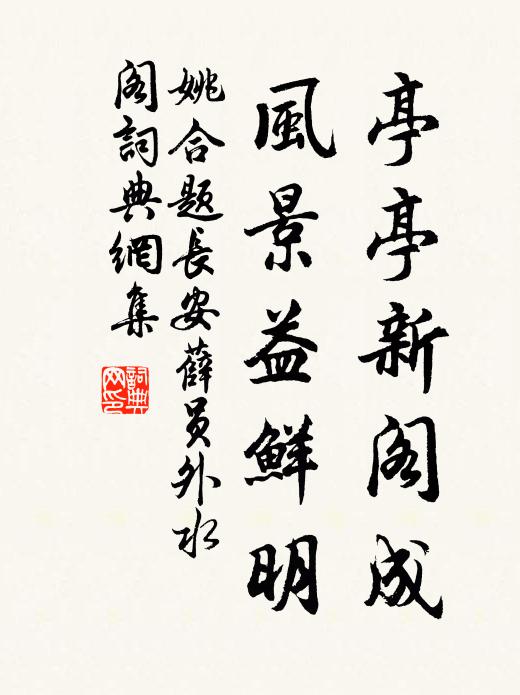 亭亭新阁成
風景益鮮明
姚合題長安薛员外水
阁詞典網集
詞典
网印